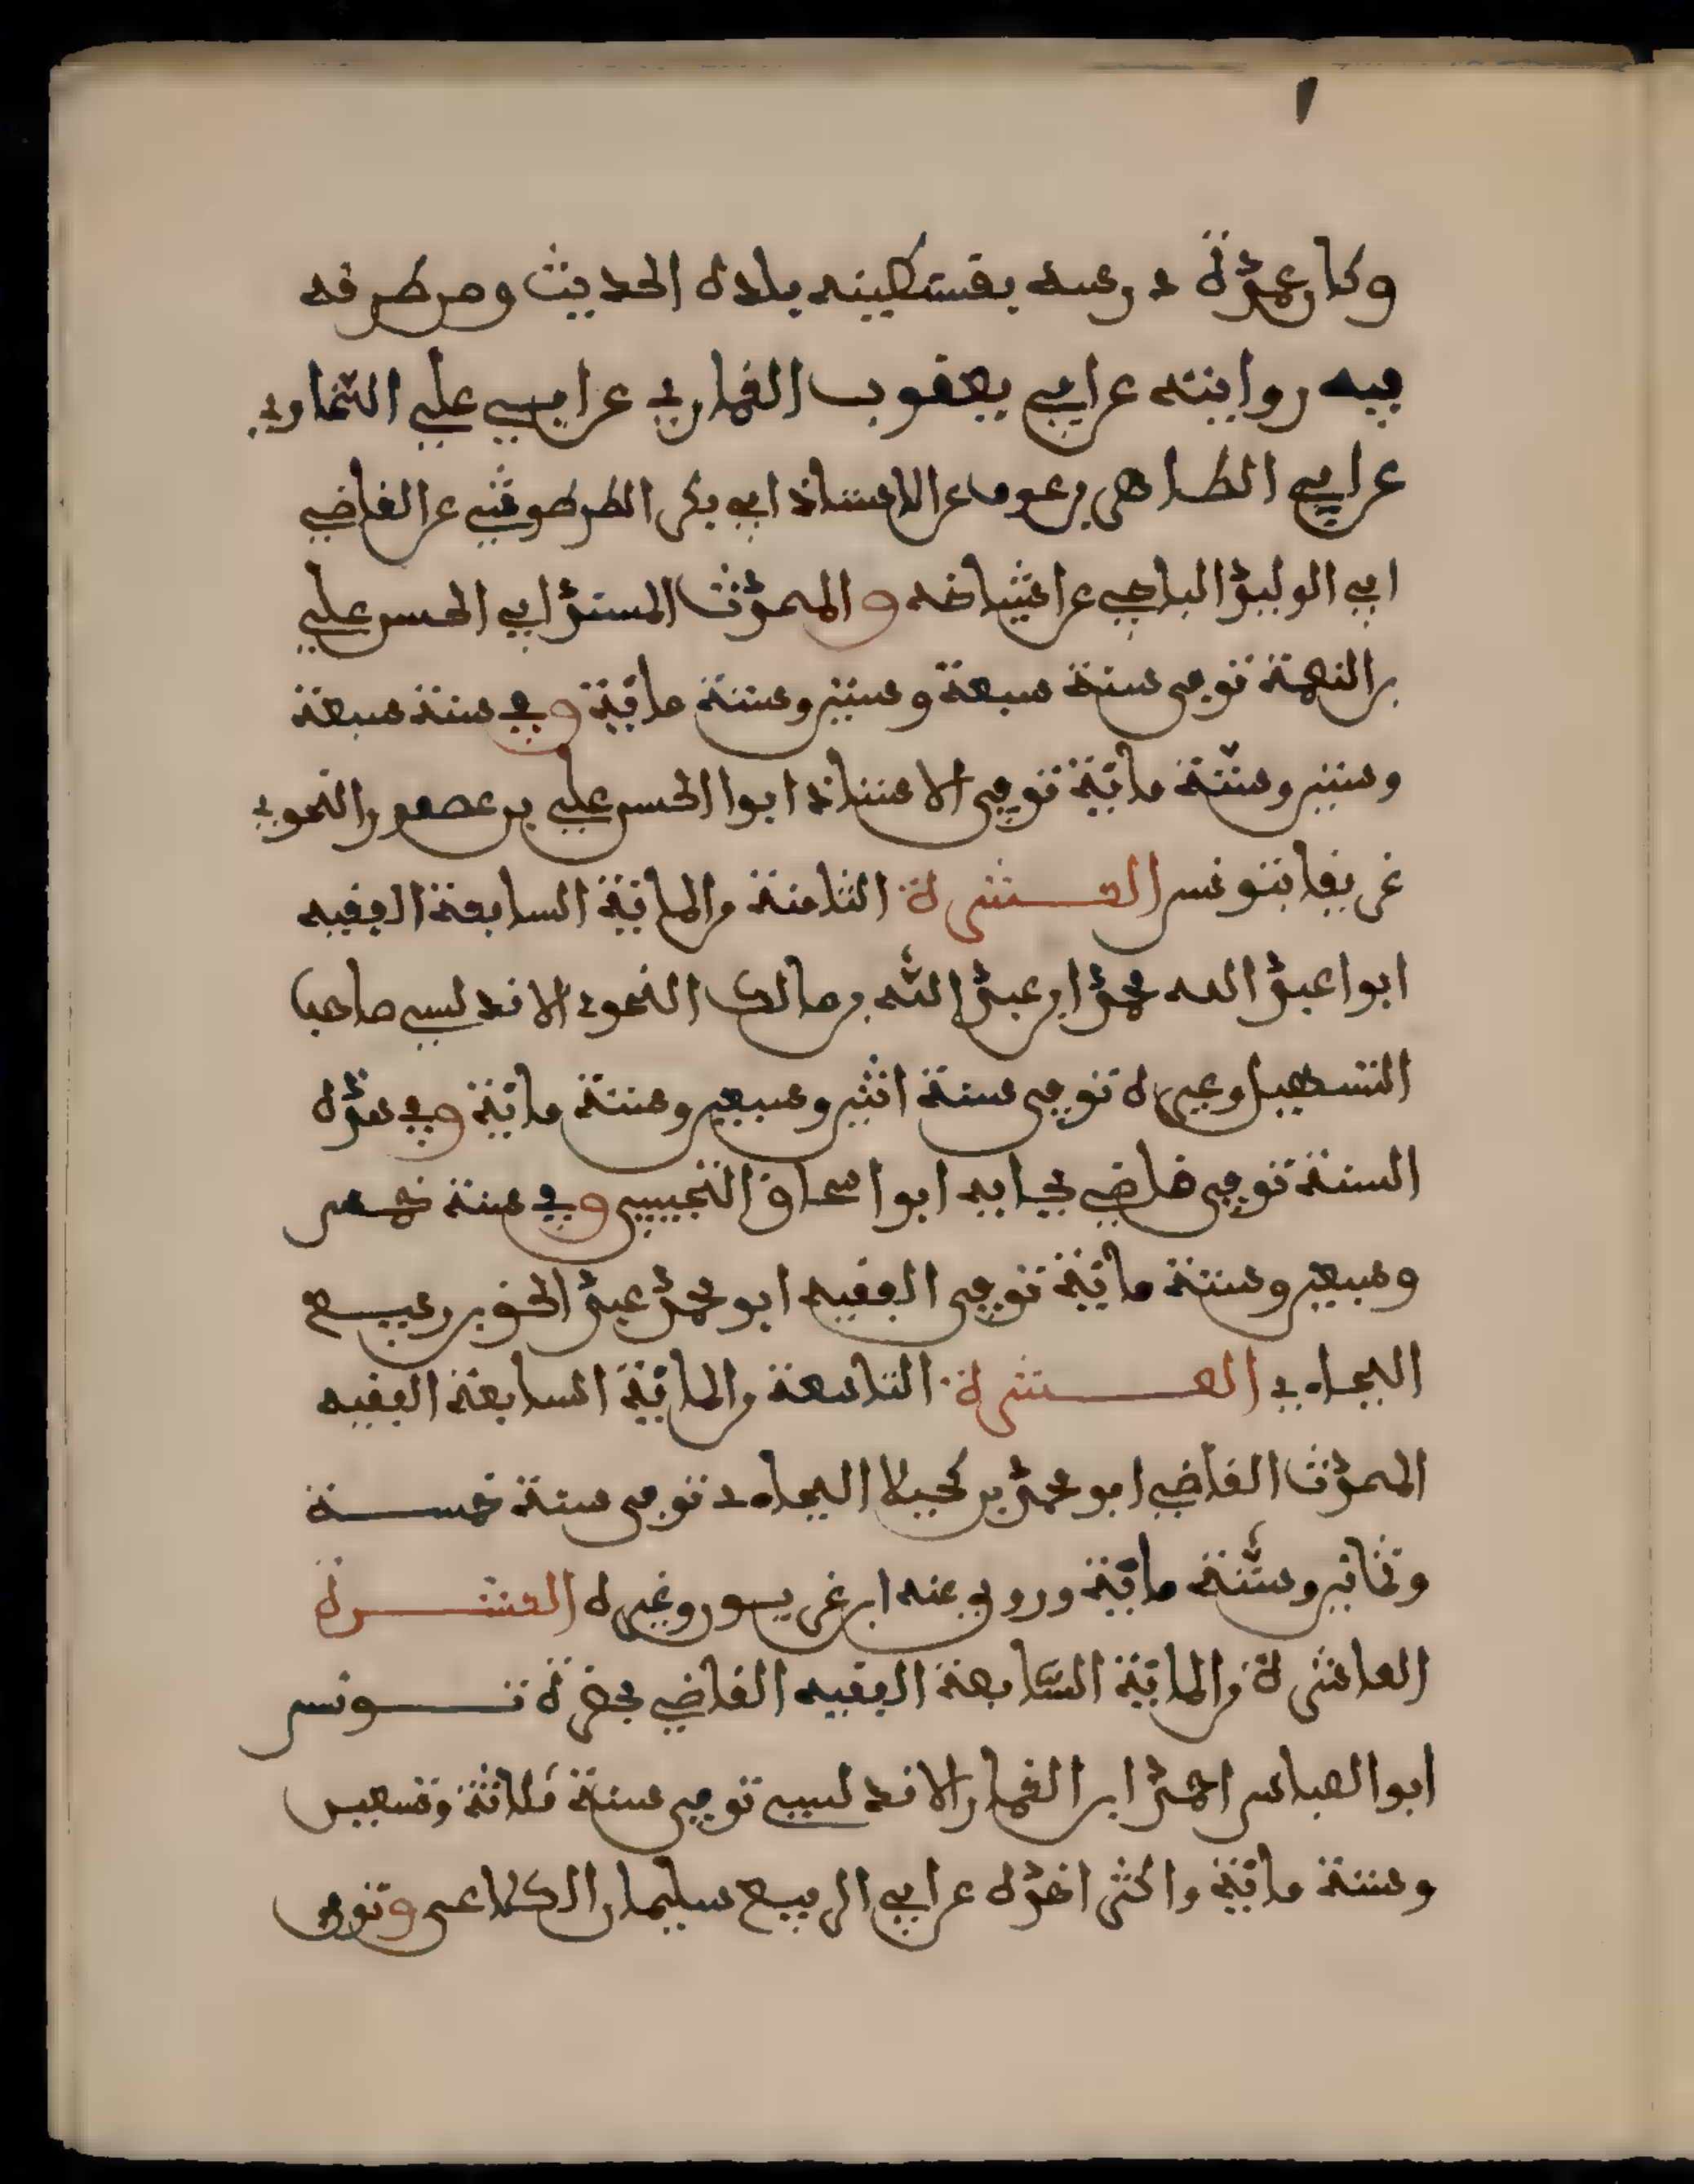 وكان عمدة درسه بقسنطينه بلده الحديث ومن طرقه
فيه روايته عن ابي يعقوب الغماري عن ابي علي الثماوي
عن ابي الطاهر بن عوف عن الاستاذ ابي بكر الطرطوشي عن القاضي
ابي الوليد الباجي عن اشياخه والمحدث المسند ابي الحسن علي
بن النعمة توفي سنة سبعة وستين وستة مائة وفي سنة سبعة
وستين وستة مائة توفي الاستاذ ابوا الحسن علي بن عصفور النحوي
غريقا بتونس العشرة الثامنة والمائة السابعة الفقيه
ابوا عبد الله محمد ابن عبد الله بن مالك النحوي الاندلسي صاحب
التسهيل وغيره توفي سنة اثنين وسبعين وستة مائة وفي هذه
السنة توفي قاضي بجايه ابوا اسحاق التجيبي وفي سنة خمس
وسبعين وستة مائة توفي الفقيه ابو محمد عبد الحق بن ربيع
البجاوي العشرة التاسعة والمائة السابعة الفقيه
المحدث القاضي ابو محمد بن كحيلا البجاوي توفي سنة خمسة
وثمانين وستة مائة وروى عنه ابن غريون وغيره العشرة
العاشرة والمائة السابعة الفقيه القاضي بحضرة تونس
ابوا العباس احمد ابن الغماز الاندلسي توفي سنة ثلاثة وتسعين
وستة مائة واكثر اخذه عن ابي الربيع سليمان الكلاعي وتوفي